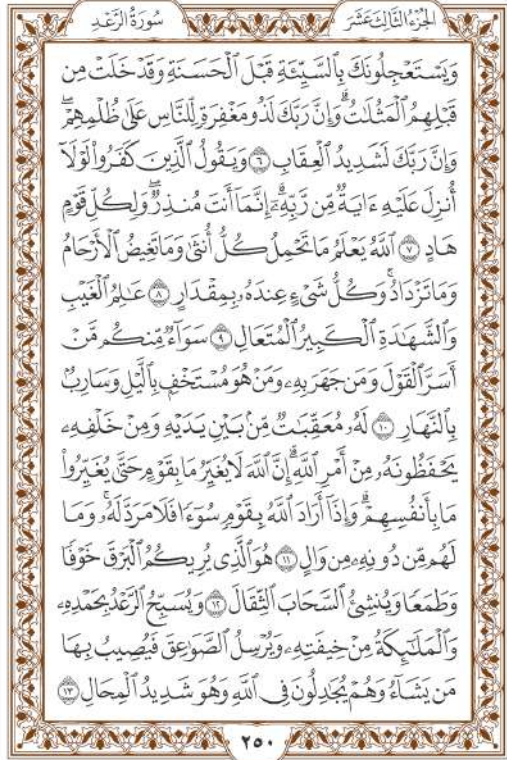 الجزء الثالث عشر سورة الرعد
وَيَسۡتَعۡجِلُونَكَ بِٱلسَّيِّئَةِ قَبۡلَ ٱلۡحَسَنَةِ وَقَدۡ خَلَتۡ مِن
قَبۡلِهِمُ ٱلۡمَثُلَٰتُۗ وَإِنَّ رَبَّكَ لَذُو مَغۡفِرَةٖ لِّلنَّاسِ عَلَىٰ ظُلۡمِهِمۡۖ
وَإِنَّ رَبَّكَ لَشَدِيدُ ٱلۡعِقَابِ ٦ وَيَقُولُ ٱلَّذِينَ كَفَرُواْ لَوۡلَآ
أُنزِلَ عَلَيۡهِ ءَايَةٞ مِّن رَّبِّهِۦٓۗ إِنَّمَآ أَنتَ مُنذِرٞۖ وَلِكُلِّ قَوۡمٍ
هَادٍ ٧ ٱللَّهُ يَعۡلَمُ مَا تَحۡمِلُ كُلُّ أُنثَىٰ وَمَا تَغِيضُ ٱلۡأَرۡحَامُ
وَمَا تَزۡدَادُۚ وَكُلُّ شَيۡءٍ عِندَهُۥ بِمِقۡدَارٍ ٨ عَٰلِمُ ٱلۡغَيۡبِ
وَٱلشَّهَٰدَةِ ٱلۡكَبِيرُ ٱلۡمُتَعَالِ ٩ سَوَآءٞ مِّنكُم مَّنۡ
أَسَرَّ ٱلۡقَوۡلَ وَمَن جَهَرَ بِهِۦ وَمَنۡ هُوَ مُسۡتَخۡفِۭ بِٱلَّيۡلِ وَسَارِبُۢ
بِٱلنَّهَارِ ١٠ لَهُۥ مُعَقِّبَٰتٞ مِّنۢ بَيۡنِ يَدَيۡهِ وَمِنۡ خَلۡفِهِۦ
يَحۡفَظُونَهُۥ مِنۡ أَمۡرِ ٱللَّهِۗ إِنَّ ٱللَّهَ لَا يُغَيِّرُ مَا بِقَوۡمٍ حَتَّىٰ يُغَيِّرُواْ
مَا بِأَنفُسِهِمۡۗ وَإِذَآ أَرَادَ ٱللَّهُ بِقَوۡمٖ سُوٓءٗا فَلَا مَرَدَّ لَهُۥۚ وَمَا
لَهُم مِّن دُونِهِۦ مِن وَالٍ ١١ هُوَ ٱلَّذِي يُرِيكُمُ ٱلۡبَرۡقَ خَوۡفٗا
وَطَمَعٗا وَيُنشِئُ ٱلسَّحَابَ ٱلثِّقَالَ ١٢ وَيُسَبِّحُ ٱلرَّعۡدُ بِحَمۡدِهِۦ
وَٱلۡمَلَٰٓئِكَةُ مِنۡ خِيفَتِهِۦ وَيُرۡسِلُ ٱلصَّوَٰعِقَ فَيُصِيبُ بِهَا
مَن يَشَآءُ وَهُمۡ يُجَٰدِلُونَ فِي ٱللَّهِ وَهُوَ شَدِيدُ ٱلۡمِحَالِ ١٣
٢٥٠